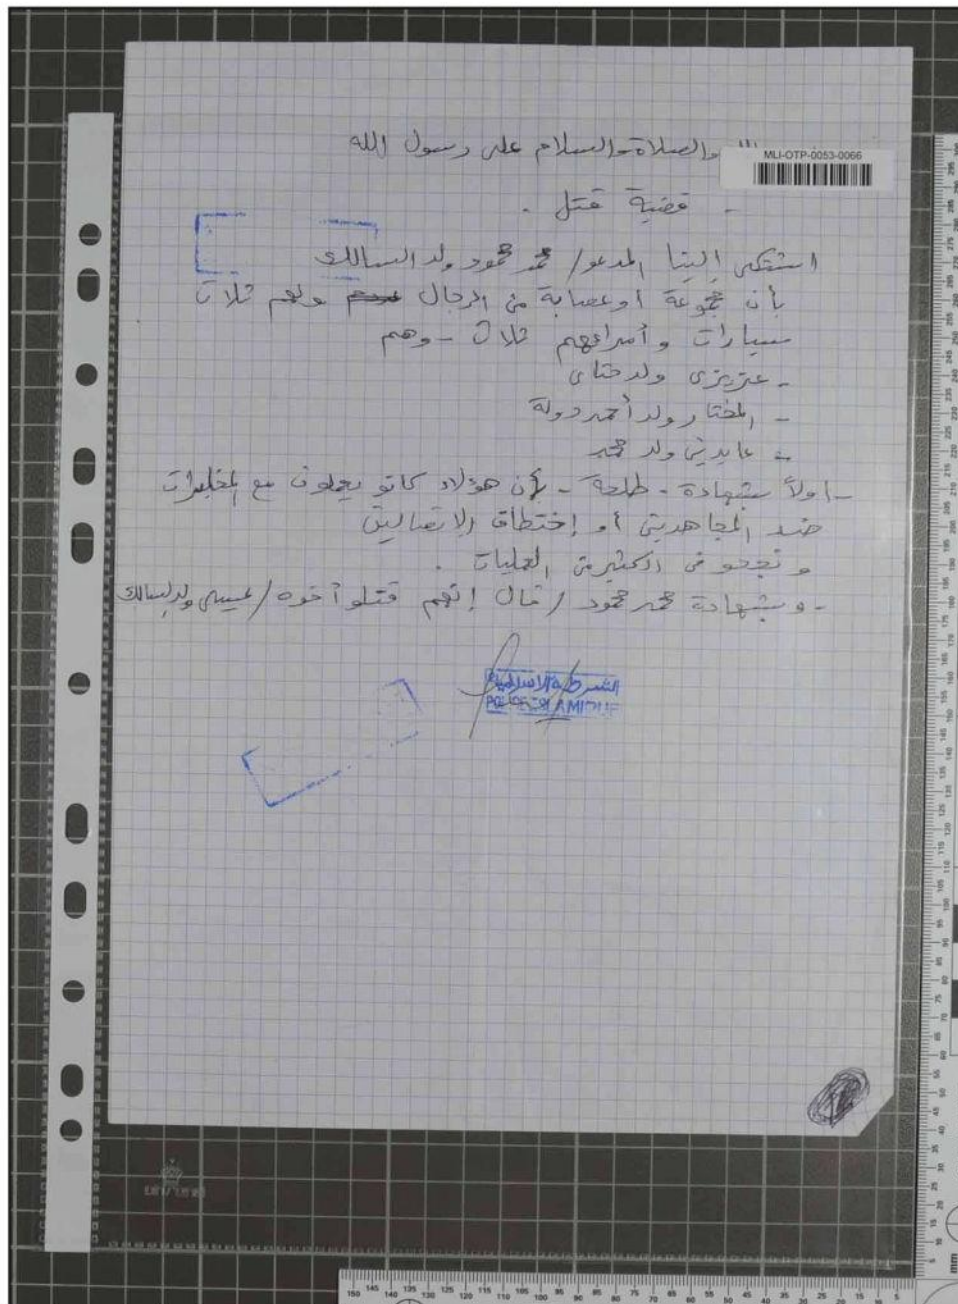 الله والصلاة والسلام على رسول الله
MLI-OTP-0053-0066
- قضية قتل .
اشتكى إلينا المدعو / محمد محمود ولد السالك
بأن مجموعة أو عصابة من الرجال ولهم ثلاث
سيارات وأمراءهم ثلاث - وهم
- عزيزي ولد حتاى
- المختار ولد أحمد دولة
- عابدين ولد محمد
- اولاً شهادة - طلحة - بأن هؤلاء كانو يعملون مع المخابرات
ضد المجاهدين أو إختطاف
ونجحو في الكثير من العمليات .
- وشهادة محمد محمود / قال إنهم قتلو أخوه / عيسى ولد السالك
الشرطة الاسلامية
POLICE ISLAMIQUE